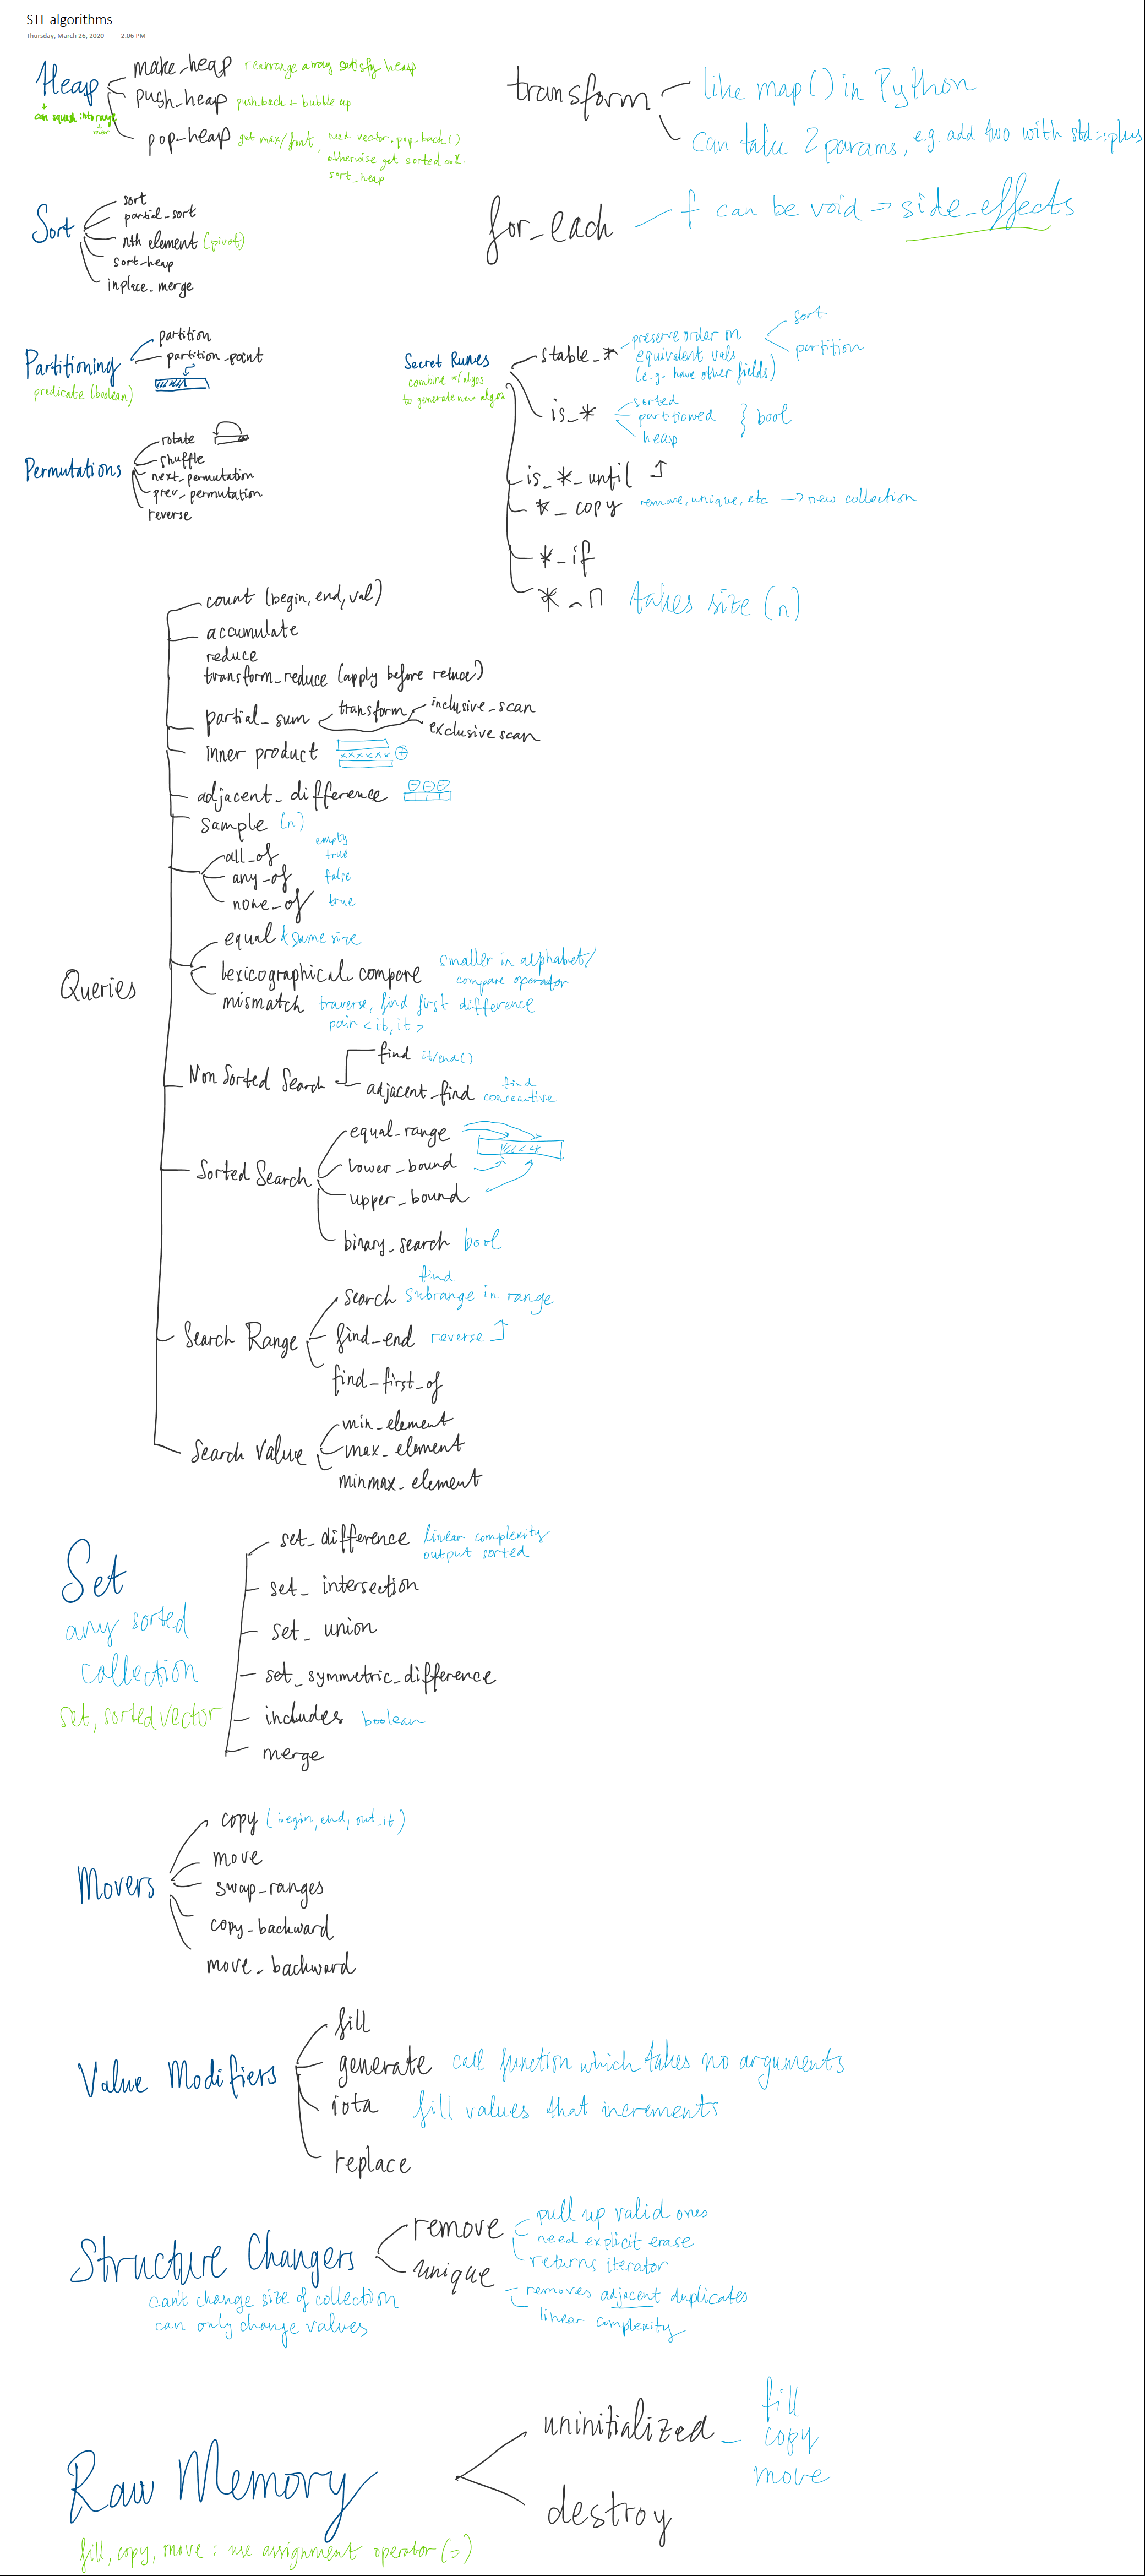 STL algorithms
Thursday, March 26, 2020 2:06 PM
Heap
can squash into range
make_heap rearrange array satisfy heap
push_heap push_back + bubble up
pop_heap get max/front, need vector.pop_back()
otherwise get sorted col.
sort_heap
transform
like map() in Python
can take 2 params, e.g. add two with std::plus
for_each
f can be void → side_effects
Sort
sort
partial_sort
nth element (pivot)
sort_heap
inplace_merge
Partitioning
predicate (boolean)
partition
partition_point
Permutations
rotate
shuffle
next_permutation
prev_permutation
reverse
Secret Runes
combine w/ algos
to generate new algos
stable_*
preserve order on
equivalent vals
(e.g. have other fields)
sort
partition
is_*
sorted
partitioned
heap
} bool
is_*_until
*_copy remove, unique, etc → new collection
*_if
*_n takes size (n)
Queries
count (begin, end, val)
accumulate
reduce
transform_reduce (apply before reduce)
partial_sum
transform
inclusive_scan
exclusive scan
inner product
adjacent_difference
sample (n)
empty
all_of true
any_of false
none_of true
equal & same size
lexicographical compare smaller in alphabet/
compare operator
mismatch traverse, find first difference
pair <it, it>
Non Sorted Search
find it/end()
adjacent_find find
consecutive
Sorted Search
equal_range
lower_bound
upper_bound
binary_search bool
Search Range
find
search subrange in range
find_end reverse
find_first_of
Search Value
min_element
max_element
minmax_element
Set
any sorted
collection
set, sorted vector
set_difference linear complexity
output sorted
set_intersection
set_union
set_symmetric_difference
includes boolean
merge
Movers
copy (begin, end, out_it)
move
swap_ranges
copy_backward
move_backward
Value Modifiers
fill
generate call function which takes no arguments
iota fill values that increments
replace
Structure Changers
can't change size of collection
can only change values
remove
pull up valid ones
need explicit erase
returns iterator
unique
removes adjacent duplicates
linear complexity
Raw Memory
fill, copy, move : use assignment operator (=)
uninitialized_
fill
copy
move
destroy